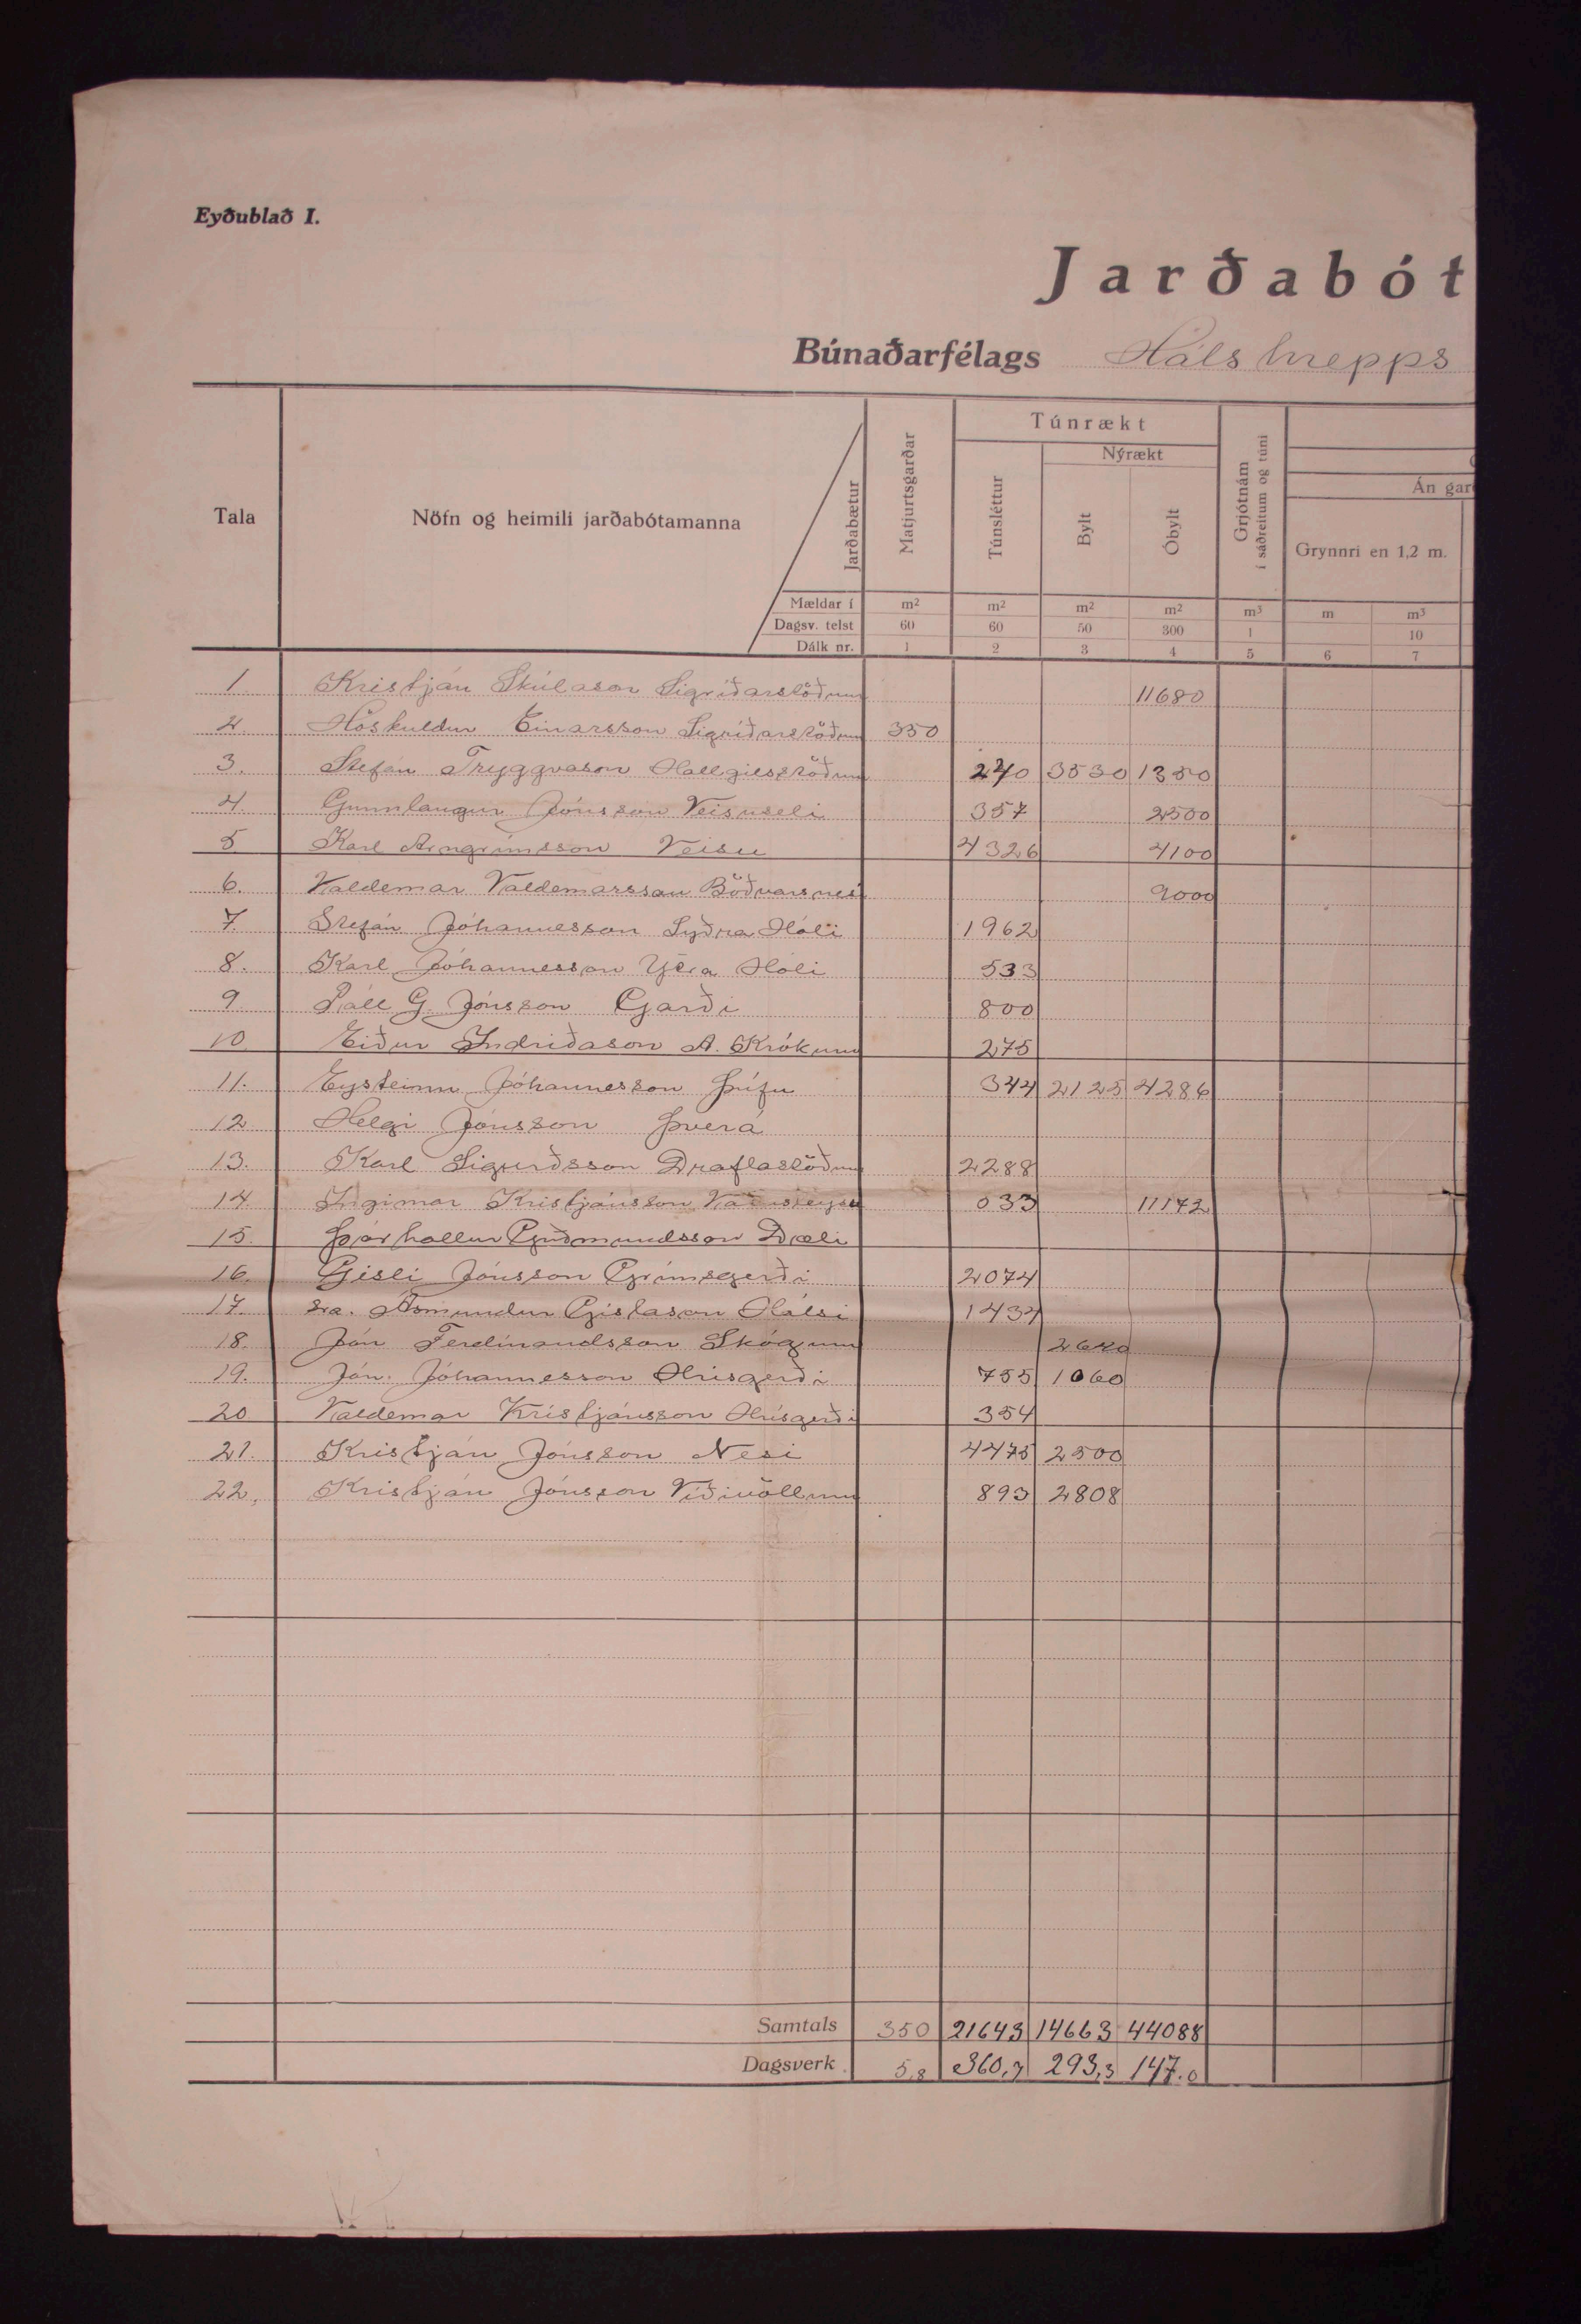 Eyðublað I.
Jarðabót
Búnaðarfélags Hálshrepps
Tala
Nöfn og heimili jarðabótamanna
Jarðabætur
Matjurtsgarðar
Túnrækt
Túnsléttur
Nýrækt
Bylt
Óbylt
Grjótnám í sáðreitum og túni
Án gar
Grynnri en 1,2 m.
Mældar í m² m² m² m² m³ m m³
Dagsv. telst 60 60 50 300 1 10
Dálk nr. 1 2 3 4 5 6 7
1. Kristján Skúlason Sigríðarstöðum 11680
2. Höskuldur Einarsson Sigríðarstöðum 350
3. Stefán Tryggvason Hallgilsstöðum 240 3530 1350
4. Gunnlaugur Jónsson Veisuseli 357 2500
5 Karl Arngrímsson Veisu 4326 4100
6. Valdemar Valdemarsson Böðvarsnesi 9000
7. Stefán Jóhannesson Syðra Hóli 1962
8. Karl Jóhannesson Ytra Hóli 533
9 Páll G. Jónsson Garði 800
10. Eiður Indriðason A. Krókum 275
11. Eysteinn Jóhannesson Þúfu 344 2125 4286
12. Helgi Jónsson Þverá
13. Karl Sigurðsson Draflastöðum 2288
14 Ingimar Kristjánsson 533 11172
15. Þórhallur Guðmundsson Dæli
16. Gísli Jónsson Grímsgerði 2074
17. sra. Ásmundur Gíslason Hálsi 1434
18. Jón Ferdínandsson Skógum 2640
19. Jón Jóhannesson Hrísgerði 755 1060
20 Valdemar Kristjánsson Hrísgerði 354
21. Kristján Jónsson Nesi 4475 2500
22. Kristján Jónsson Víðivöllum 893 2808
Samtals 350 21643 14663 44088
Dagsverk 5,8 360,7 293,3 147.0